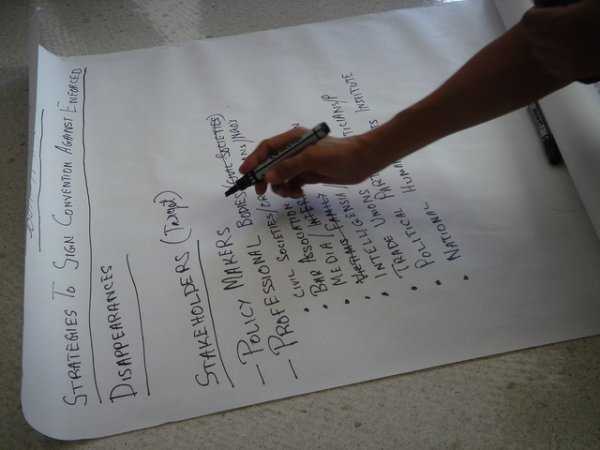 STRATEGIES TO SIGN CONVENTION AGAINST ENFORCED
DISAPPEARANCES
STAKEHOLDERS (Target)
- POLICY MAKERS
- PROFESSIONAL BODIES (CIVIL SOCIETIES)
• CIVIL SOCIETIES/ /NGOS
• BAR ASSOCIATION
• MEDIA/
• FAMILY
• INTELLIGENSIA/
• TRADE UNIONS
• POLITICAL PARTIES
• NATIONAL HUMAN INSTITUTE